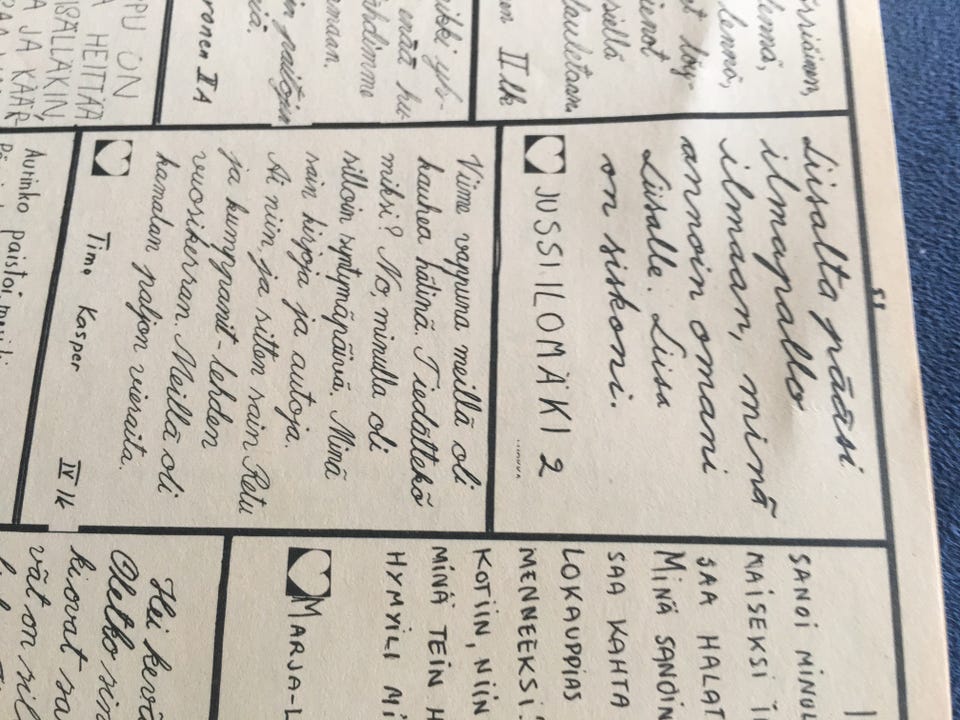 lennä,
lauletaan.
II lk
maan.
ronen IA
ON
HEITTÄÄ
JA KÄÄR-
Liisalta pääsi
ilmapallo
ilmaan, minä
annoin omani
Liisalle. Liisa
on siskoni.
JUSSI ILOMÄKI 2
Viime vappuna meillä oli
kauhea hälinä. Tiedättekö
miksi? No, minulla oli
silloin syntymäpäivä. Minä
sain kirjoja ja autoja.
Ai niin ja sitten sain Retu
ja kumppanit-lehden
vuosikerran. Meillä oli
hamdan paljon vieraita.
Timo Kasper IV lk
Aurinko paistoi
SANOI MINUL
NAISEKSI
JAA HALAT
MINÄ SANOIN
SAA KAHTA
LOKAUPPIAS
MENNEEKSI.
KOTIIN, NIIN
MINÄ TEIN H
HYMYILI MI
MARJA-L
Hei kevä
Oletko
vät on